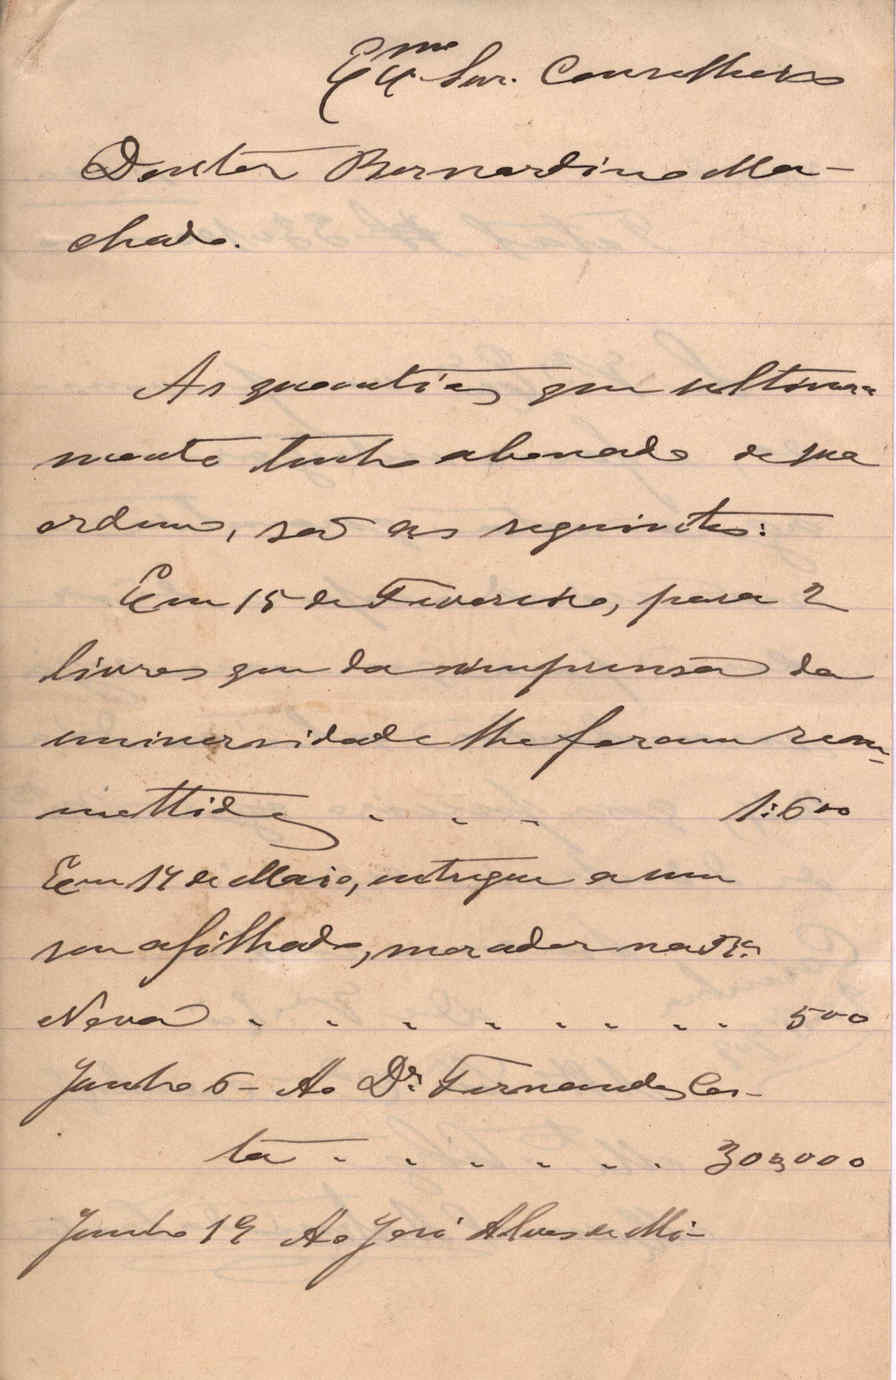 Exmo Snr. Conselheiro
Doutor Bernardino Ma-
chado.
As quantias que ultima-
mente tenho abonado de sua
ordem, são as seguintes:
Em 15 de Fevereiro, para 2
livros que da imprensa da
universidade lhe foram rem-
mettidos . . . 1:600
Em 14 de Maio, entregue a um
seu afilhado, morador na Rª
Nova . . . . . . . . 500
Junho 6 - Ao Dr. Fernandes Cos-
ta . . . . . . 30$000
Junho 19 Ao José Alves de Mi-